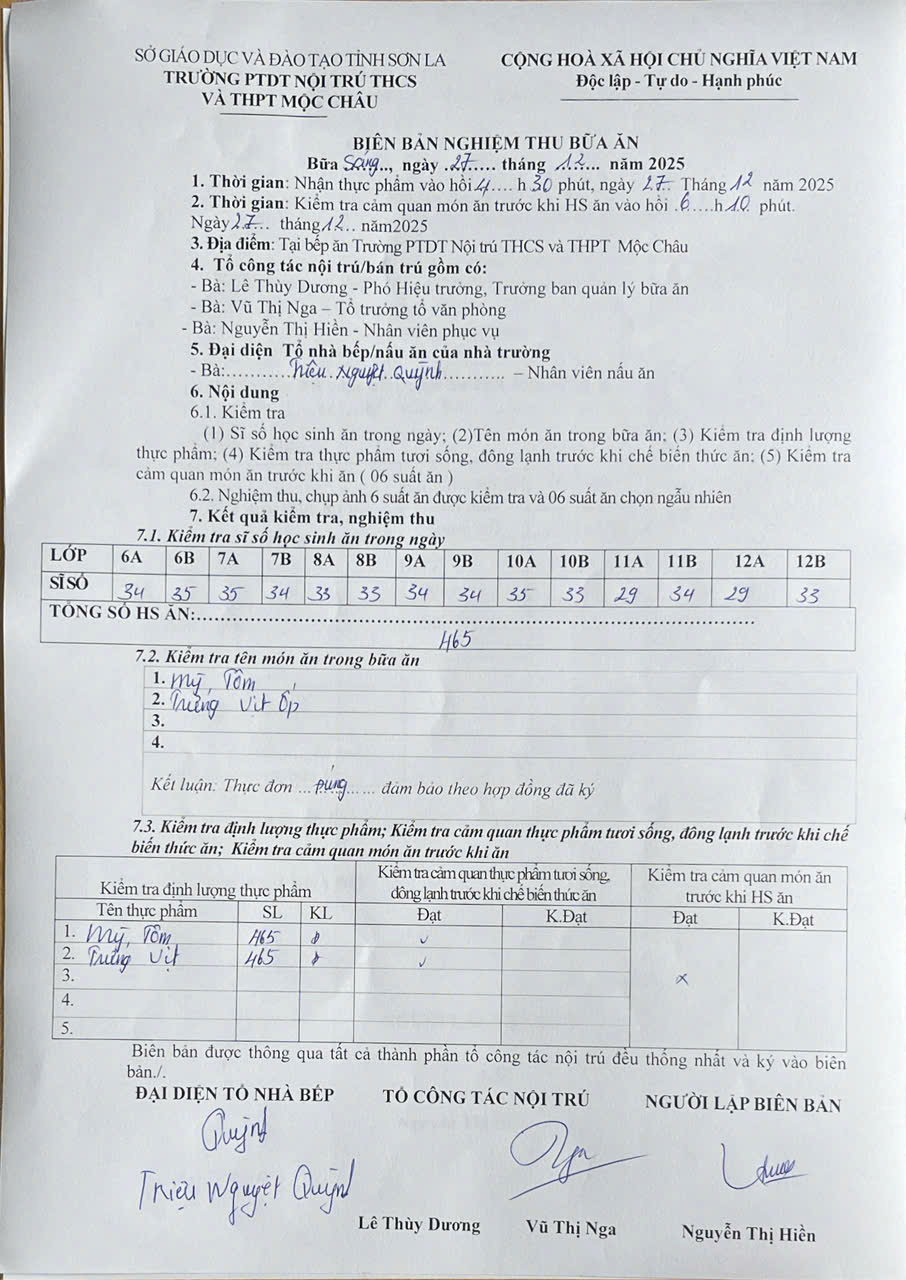 SỞ GIÁO DỤC VÀ ĐÀO TẠO TỈNH SƠN LA
TRƯỜNG PTDT NỘI TRÚ THCS
VÀ THPT MỘC CHÂU
CỘNG HOÀ XÃ HỘI CHỦ NGHĨA VIỆT NAM
Độc lập - Tự do - Hạnh phúc
BIÊN BẢN NGHIỆM THU BỮA ĂN
Bữa Sáng.., ngày .27..... tháng 12.... năm 2025
1. Thời gian: Nhận thực phẩm vào hồi 4.... h 30 phút, ngày 27. Tháng 12 năm 2025
2. Thời gian: Kiểm tra cảm quan món ăn trước khi HS ăn vào hồi .6....h10. phút.
Ngày 27... tháng 12.. năm2025
3. Địa điểm: Tại bếp ăn Trường PTDT Nội trú THCS và THPT Mộc Châu
4. Tổ công tác nội trú/bán trú gồm có:
- Bà: Lê Thùy Dương - Phó Hiệu trưởng, Trưởng ban quản lý bữa ăn
- Bà: Vũ Thị Nga – Tổ trưởng tổ văn phòng
- Bà: Nguyễn Thị Hiền - Nhân viên phục vụ
5. Đại diện Tổ nhà bếp/nấu ăn của nhà trường
- Bà:...........Triệu Nguyệt Quỳnh........... – Nhân viên nấu ăn
6. Nội dung
6.1. Kiểm tra
(1) Sĩ số học sinh ăn trong ngày; (2)Tên món ăn trong bữa ăn; (3) Kiểm tra định lượng
thực phẩm; (4) Kiểm tra thực phẩm tươi sống, đông lạnh trước khi chế biến thức ăn; (5) Kiểm tra
cảm quan món ăn trước khi ăn ( 06 suất ăn )
6.2. Nghiệm thu, chụp ảnh 6 suất ăn được kiểm tra và 06 suất ăn chọn ngẫu nhiên
7. Kết quả kiểm tra, nghiệm thu
7.1. Kiểm tra sĩ số học sinh ăn trong ngày
LỚP 6A 6B 7A 7B 8A 8B 9A 9B 10A 10B 11A 11B 12A 12B
SĨ SỐ 34 35 35 34 33 33 34 34 35 33 29 34 29 33
TỔNG SỐ HS ĂN:..........................................................................
465
7.2. Kiểm tra tên món ăn trong bữa ăn
1. Mỳ, Tôm
2. Trứng Vịt ốp
3.
4.
Kết luận: Thực đơn ...Đúng...... đảm bảo theo hợp đồng đã ký
7.3. Kiểm tra định lượng thực phẩm; Kiểm tra cảm quan thực phẩm tươi sống, đông lạnh trước khi chế
biến thức ăn; Kiểm tra cảm quan món ăn trước khi ăn
Kiểm tra định lượng thực phẩm
Kiểm tra cảm quan thực phẩm tươi sống,
đông lạnh trước khi chế biến thức ăn
Kiểm tra cảm quan món ăn
trước khi HS ăn
Tên thực phẩm SL KL Đạt K.Đạt Đạt K.Đạt
1. Mỳ, Tôm 465 ✓
2. Trứng Vịt 465 ✓
3. x
4.
5.
Biên bản được thông qua tất cả thành phần tổ công tác nội trú đều thống nhất và ký vào biên
bản./.
ĐẠI DIỆN TỔ NHÀ BẾP TỔ CÔNG TÁC NỘI TRÚ NGƯỜI LẬP BIÊN BẢN
Quỳnh Nga
Triệu Nguyệt Quỳnh
Lê Thùy Dương Vũ Thị Nga Nguyễn Thị Hiền